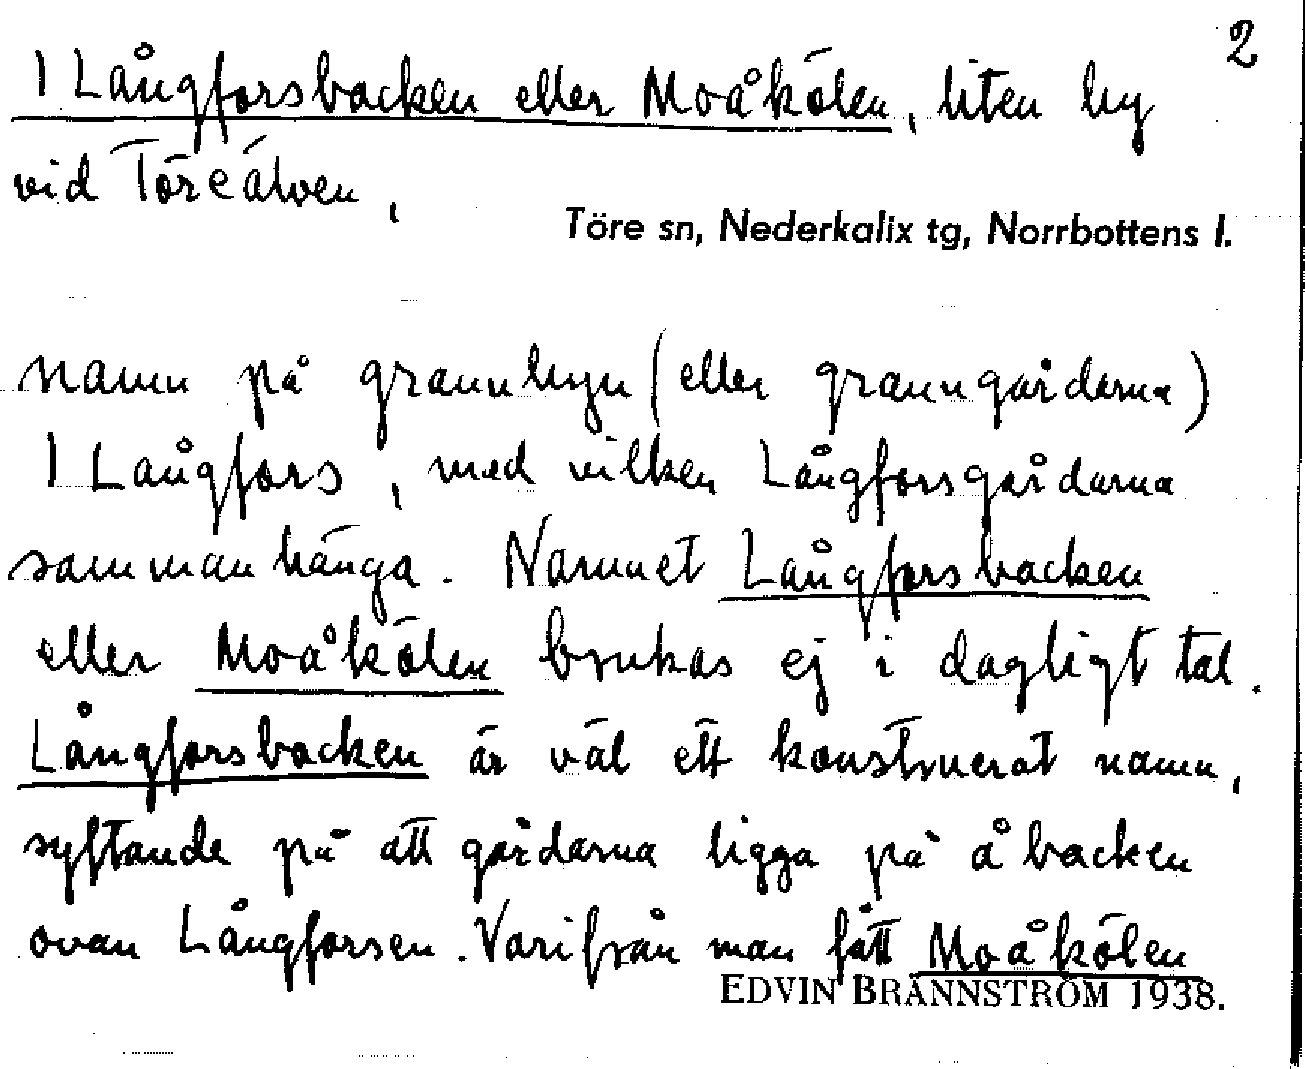 2
I Långforsbacken eller Moåkölen, liten by
vid Töreälven,
Töre sn, Nederkalix tg, Norrbottens l.
namn på grannbyn (eller granngårdarna)
I Långfors, med vilken Långforsgårdarna
sammanhänga. Namnet Långforsbacken
eller Moåkölen brukas ej i dagligt tal.
Långforsbacken är väl ett konstruerat namn,
syftande på att gårdarna ligga på åbacken
ovan Långforsen. Varifrån man fått Moåkölen
EDVIN BRÄNNSTRÖM 1938.